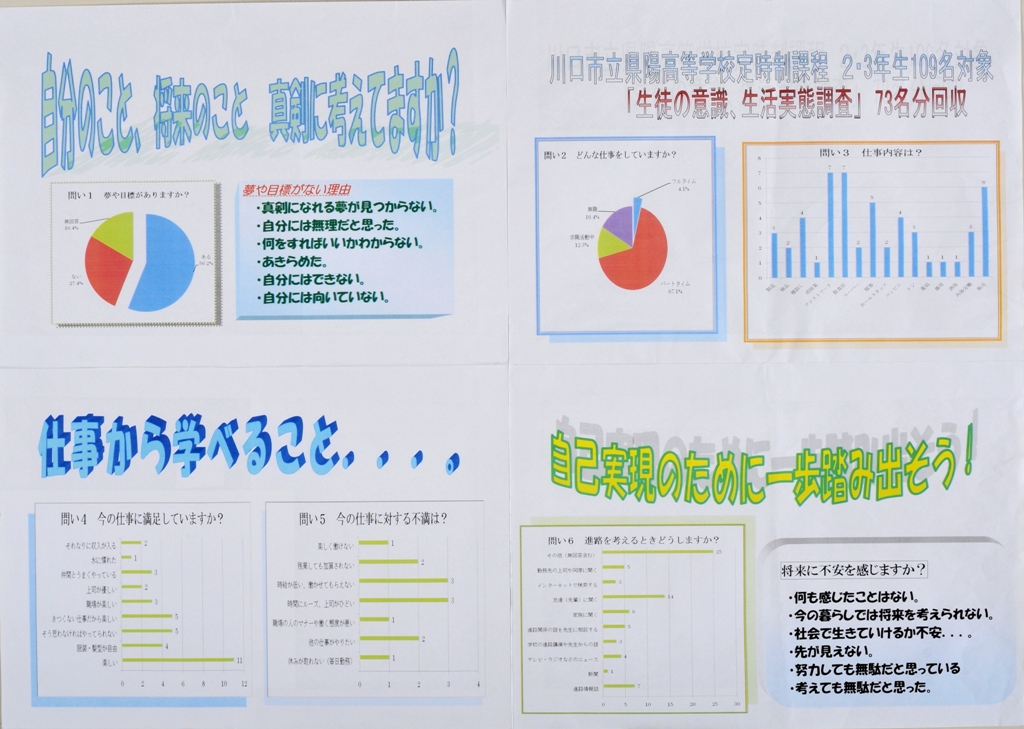 自分のこと、将来のこと　真剣に考えてますか？
問い1　夢や目標がありますか？
無回答
16.4%
ある
56.2%
ない
27.4%
夢や目標がない理由
・真剣になれる夢が見つからない。
・自分には無理だと思った。
・何をすればいいかわからない。
・あきらめた。
・自分にはできない。
・自分には向いていない。
川口市立県陽高等学校定時制課程　2・3年生109名対象
「生徒の意識、生活実態調査」　73名分回収
問い2　どんな仕事をしていますか？
フルタイム
4.1%
無職
16.4%
求職活動中
12.3%
パートタイム
67.1%
問い3　仕事内容は？
8
7
6
5
4
3
2
1
0
3 2 4 1 7 7 2 5 2 4 3 1 1 1 3 6
仕事から学べること．．．．。
問い4　今の仕事に満足していますか？
それなりに収入が入る 2
水に慣れた 1
仲間とうまくやっている 3
上司が優しい 2
職場が楽しい 3
きつくない仕事だから楽しい 5
そう思わなければやってられない 5
服装・髪型が自由 4
楽しい 11
0 2 4 6 8 10 12
問い5　今の仕事に対する不満は？
楽しく働けない 1
残業しても加算されない 2
時給が低い、働かせてもらえない 3
時間にルーズ、上司がひどい 3
職場の人のマナーや働く態度が悪い 1
他の仕事がやりたい 2
休みが取れない（毎日勤務） 1
0 1 2 3 4
自己実現のために一歩踏み出そう！
問い6　進路を考えるときどうしますか？
その他（無回答含む） 25
勤務先の上司や同僚に聞く
インターネットで検索する
友達（先輩）に聞く 14
家族に聞く
進路関係の話を先生に相談する
学校の進路講演や先生からの話
テレビ・ラジオなどのニュース 4
新聞 1
進路情報誌 7
0 5 10 15 20 25 30
将来に不安を感じますか？
・何も感じたことはない。
・今の暮らしでは将来を考えられない。
・社会で生きていけるか不安．．．。
・先が見えない。
・努力しても無駄だと思っている
・考えても無駄だと思った。